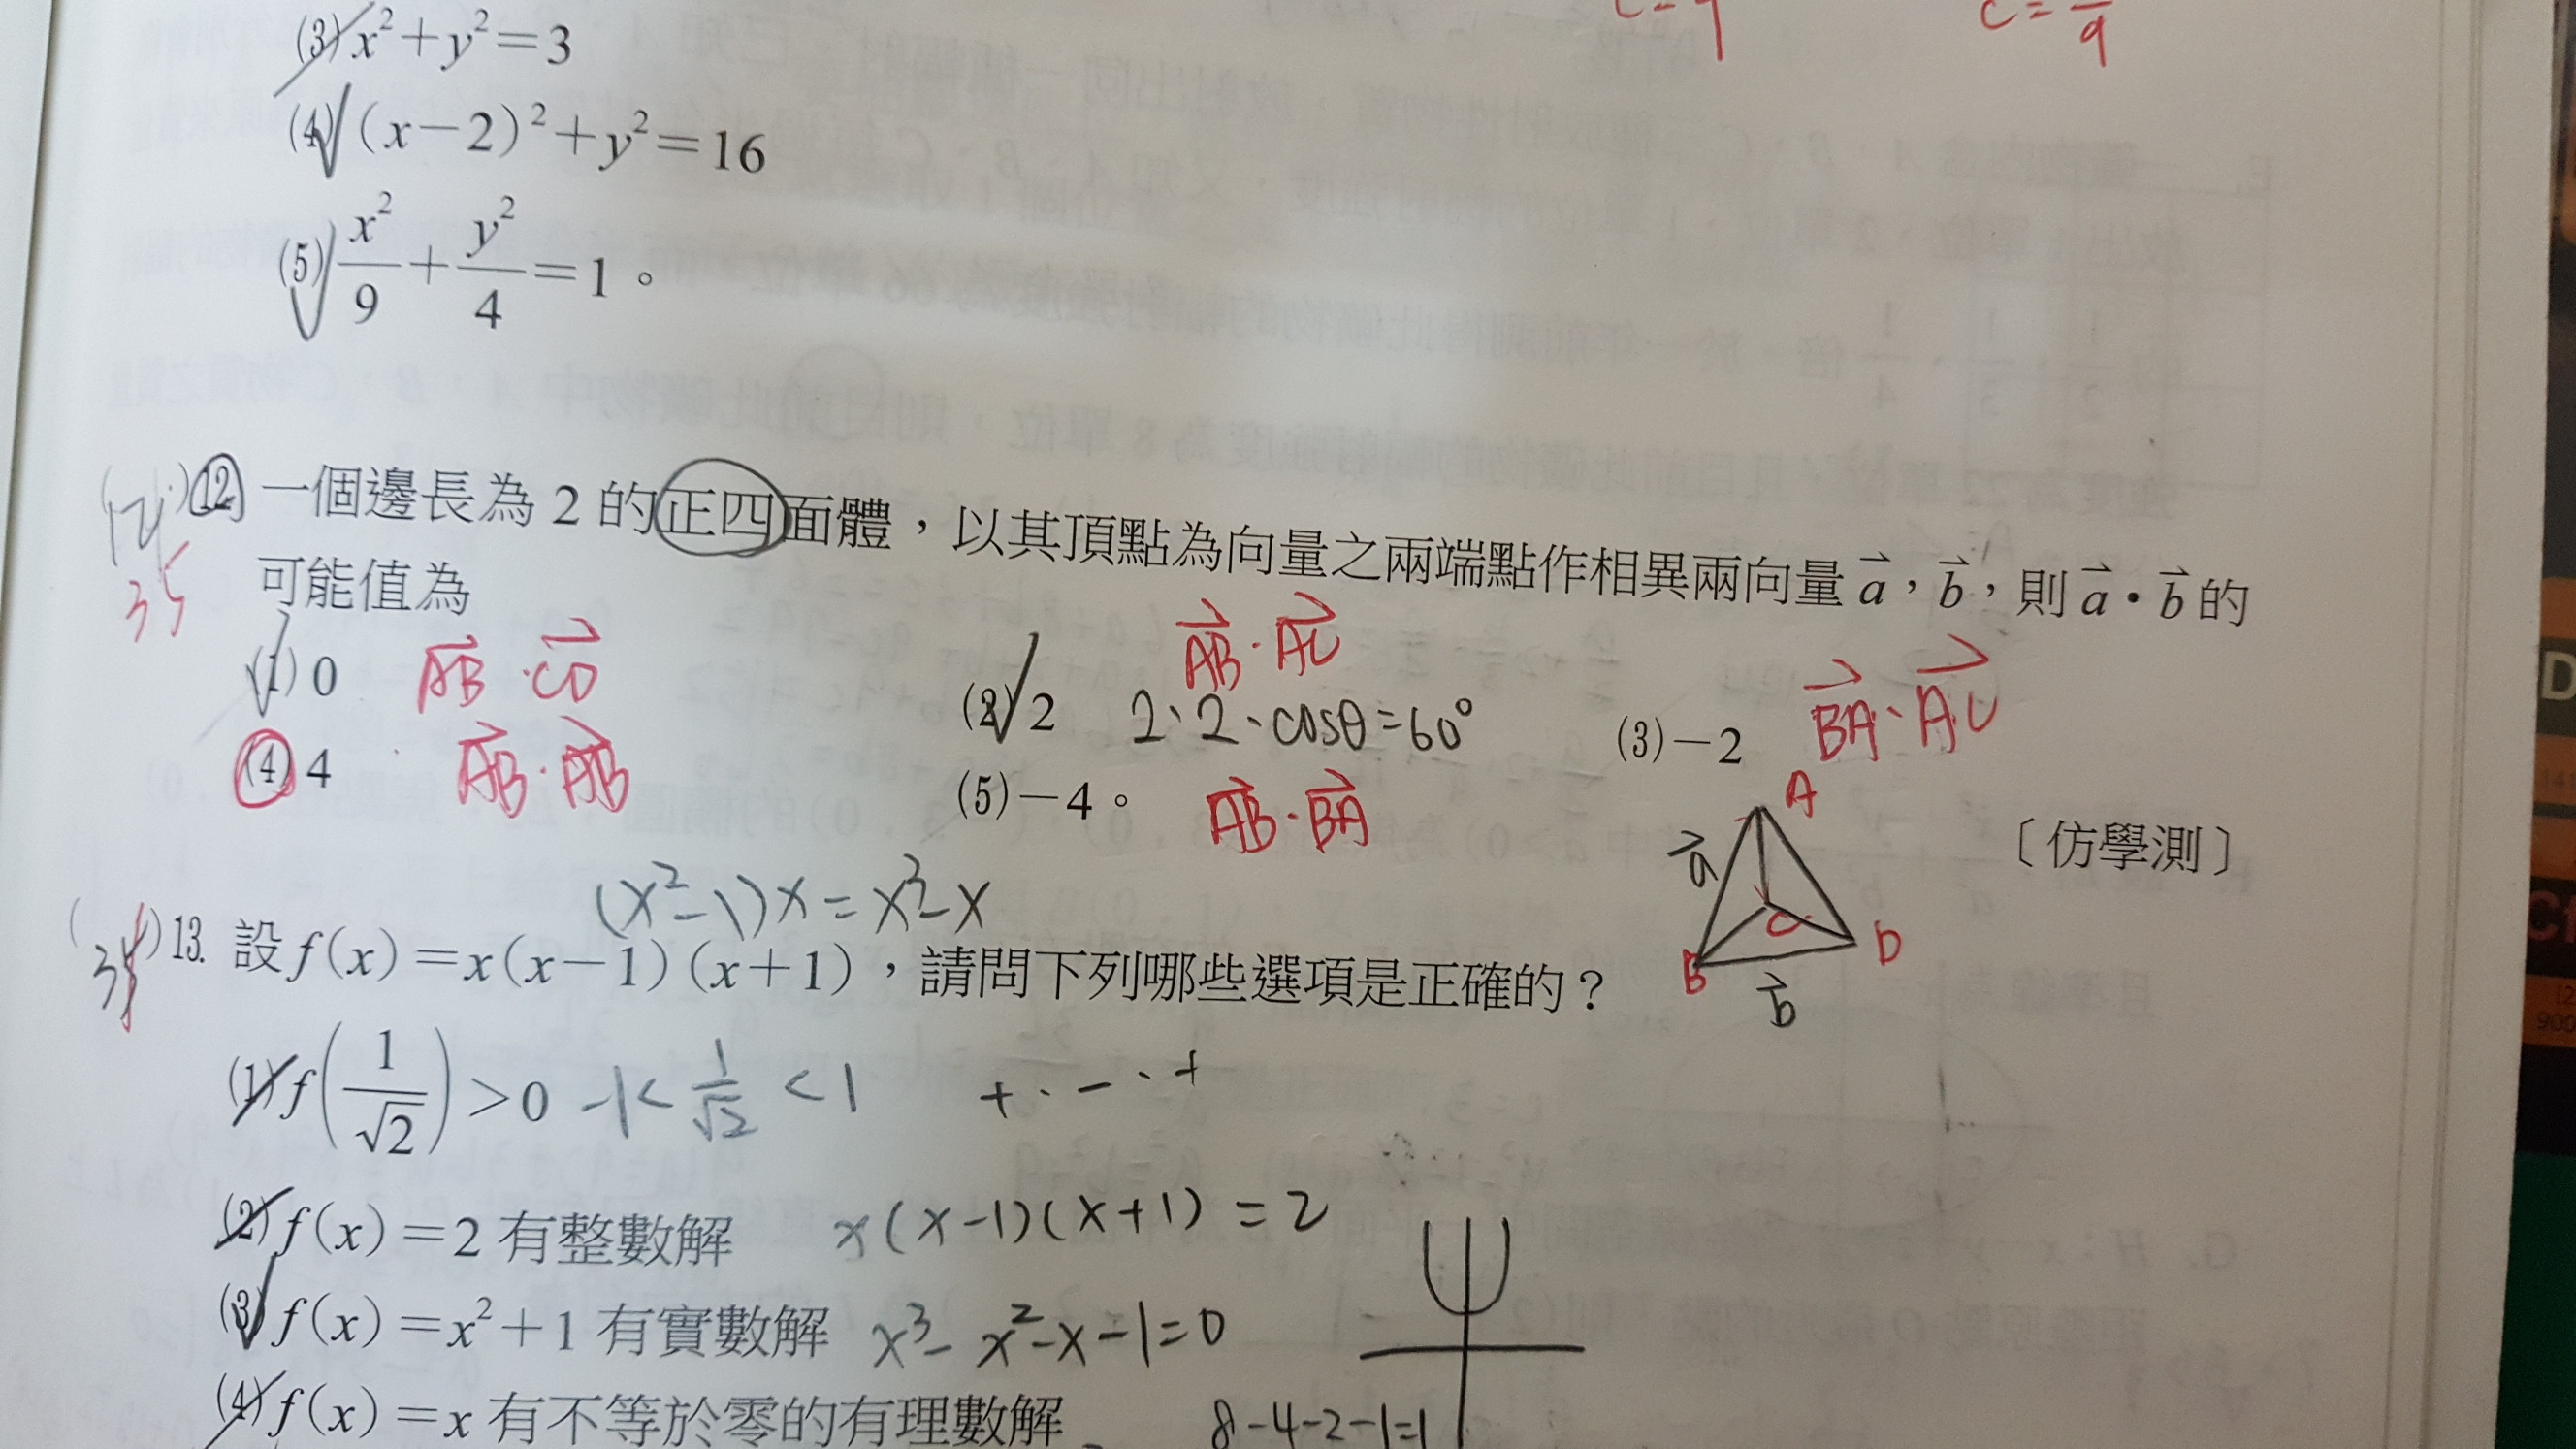 (3) x²+y²=3
C=
C= /9
(4) (x-2)²+y²=16
(5) x²/9 + y²/4 = 1。
12. 一個邊長為 2 的正四面體，以其頂點為向量之兩端點作相異兩向量 a⃗，b⃗，則 a⃗・b⃗ 的
可能值為
35
(1) 0 AB⃗・CD⃗
(2) 2 AB⃗・AC⃗
2・2・cosθ=60°
(3) -2 BA⃗・AC⃗
(4) 4 AB⃗・AB⃗
(5) -4。 AB⃗・BA⃗
〔仿學測〕
A
a⃗
C
B
D
b⃗
(x²-1)x=x³-x
13. 設 f(x)=x(x-1)(x+1)，請問下列哪些選項是正確的？
(1) f(1/√2)>0 -1<1/√2<1 +・-・+
(2) f(x)=2 有整數解 x(x-1)(x+1)=2
(3) f(x)=x²+1 有實數解 x³-x²-x-1=0
(4) f(x)=x 有不等於零的有理數解 8-4-2-1=1